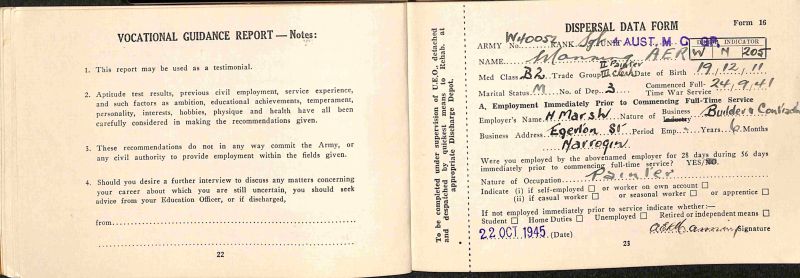 VOCATIONAL GUIDANCE REPORT — Notes:
1. This report may be used as a testimonial.
2. Aptitude test results, previous civil employment, service experience,
and such factors as ambition, educational achievements, temperament,
personality, interests, hobbies, physique and health have all been
carefully considered in making the recommendations given.
3. These recommendations do not in any way commit the Army, or
any civil authority to provide employment within the fields given.
4. Should you desire a further interview to discuss any matters concerning
your career about which you are still uncertain, you should seek
advice from your Education Officer, or if discharged,
from
22
To be completed under supervision of U.E.O., detached
and despatched by quickest means to Rehab. at
appropriate Discharge Depot.
DISPERSAL DATA FORM Form 16
ARMY No. RANK Sgt UNIT 4 AUST. M. G. INDICATOR
NAME Manning A E R W N 205
Med Class B2 Trade Group II Painter III Clerk Date of Birth 19.12.11
Marital Status M No. of Dep. 3 Commenced Full-Time War Service 24.9.41
A. Employment Immediately Prior to Commencing Full-Time Service
Employer's Name H Marsh Nature of Business Industry Builder & Contractor
Business Address Egerton St Period Emp. Years 6 Months
Narrogin
Were you employed by the abovenamed employer for 28 days during 56 days
immediately prior to commencing full-time service? YES/NO.
Nature of Occupation Painter
Indicate (i) if self-employed or worker on own account
(ii) if casual worker or seasonal worker or apprentice
If not employed immediately prior to service indicate whether :—
Student Home Duties Unemployed Retired or independent means
22 OCT 1945 (Date) Signature
23